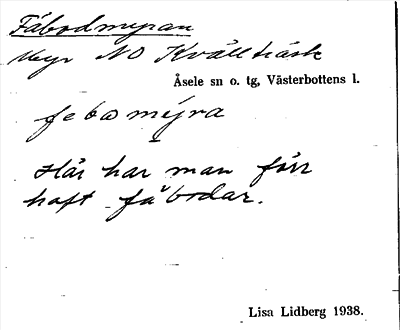 Fäbodmyran
Myr NO Kvällträsk
Åsele sn o. tg, Västerbottens l.
febomyra
Här har man förr
haft fäbodar.
Lisa Lidberg 1938.